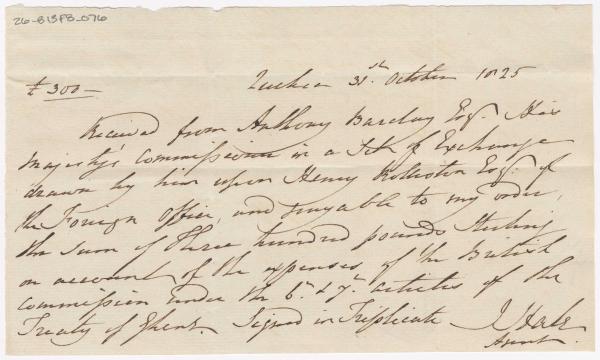 26-B13F3-076
£300—
Quebec 31st. October 1825
Received from Anthony Barclay Esq. His
Majesty's Commissioner in a Set of Exchange
drawn by him upon Henry Rolleston Esq. of
the Foreign Office, and payable to my order,
the sum of three hundred pounds Sterling
on account of the expenses of the British
Commission under the 6th & 7th articles of the
Treaty of Ghent. Signed in Triplicate J Hale
Agent.